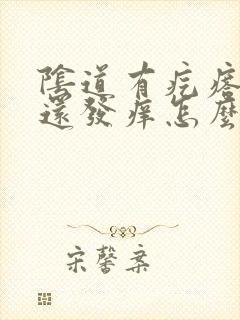 陰道有疙瘩
還發痒怎麼
宋馨棄